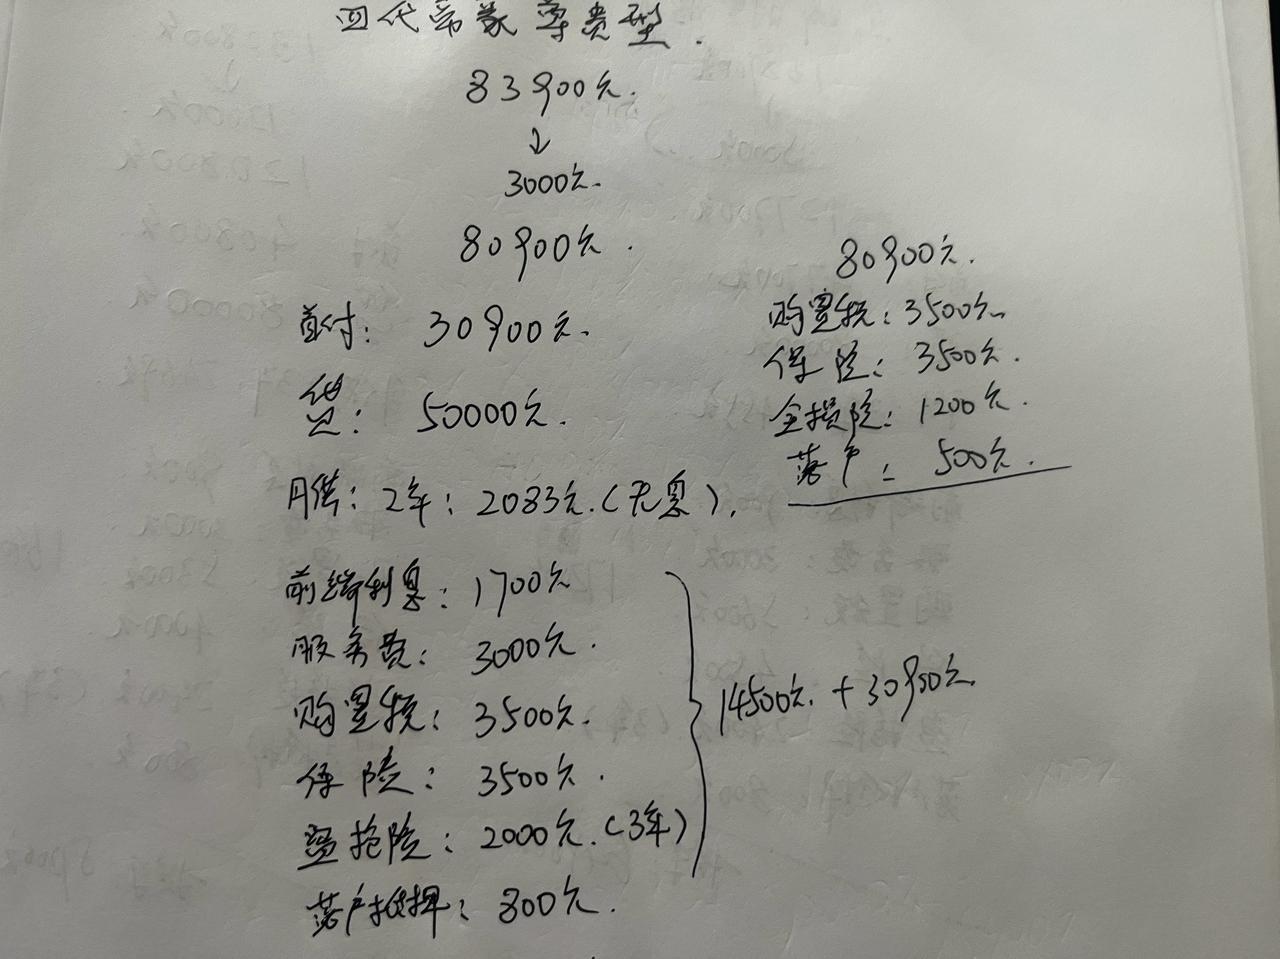 四代帝豪尊贵型.
83900元.
↓
3000元.
80900元.
首付: 30900元.
贷: 50000元.
月供: 2年: 2083元.(无息).
前端利息: 1700元
服务费: 3000元.
购置税: 3500元.
保险: 3500元.
盗抢险: 2000元.(3年)
落户抵押: 800元.
14500元. + 30900元.
80900元.
购置税: 3500元.
保险: 3500元.
全损险: 1200元.
落户: 500元.